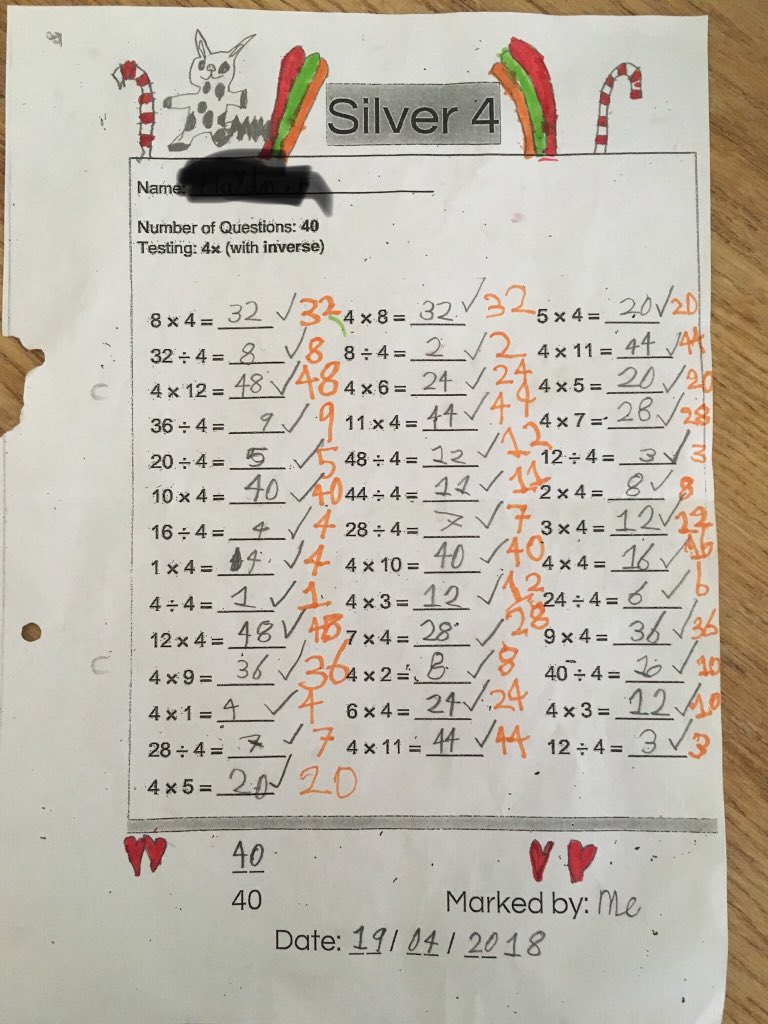 Silver 4
Name:
Number of Questions: 40
Testing: 4× (with inverse)
8 × 4 = 32 ✓ 32 4 × 8 = 32 ✓ 32 5 × 4 = 20 ✓ 20
32 ÷ 4 = 8 ✓ 8 8 ÷ 4 = 2 ✓ 2 4 × 11 = 44 ✓ 44
4 × 12 = 48 ✓ 48 4 × 6 = 24 ✓ 24 4 × 5 = 20 ✓ 20
36 ÷ 4 = 9 ✓ 9 11 × 4 = 44 ✓ 44 4 × 7 = 28 ✓ 28
20 ÷ 4 = 5 ✓ 5 48 ÷ 4 = 12 ✓ 12 12 ÷ 4 = 3 ✓ 3
10 × 4 = 40 ✓ 40 44 ÷ 4 = 11 ✓ 11 2 × 4 = 8 ✓ 8
16 ÷ 4 = 4 ✓ 4 28 ÷ 4 = 7 ✓ 7 3 × 4 = 12 ✓ 12
1 × 4 = 4 ✓ 4 4 × 10 = 40 ✓ 40 4 × 4 = 16 ✓ 16
4 ÷ 4 = 1 ✓ 1 4 × 3 = 12 ✓ 12 24 ÷ 4 = 6 ✓ 6
12 × 4 = 48 ✓ 48 7 × 4 = 28 ✓ 28 9 × 4 = 36 ✓ 36
4 × 9 = 36 ✓ 36 4 × 2 = 8 ✓ 8 40 ÷ 4 = 10 ✓ 10
4 × 1 = 4 ✓ 4 6 × 4 = 24 ✓ 24 4 × 3 = 12 ✓ 10
28 ÷ 4 = 7 ✓ 7 4 × 11 = 44 ✓ 44 12 ÷ 4 = 3 ✓ 3
4 × 5 = 20 ✓ 20
40
40
Marked by: Me
Date: 19 / 04 / 2018